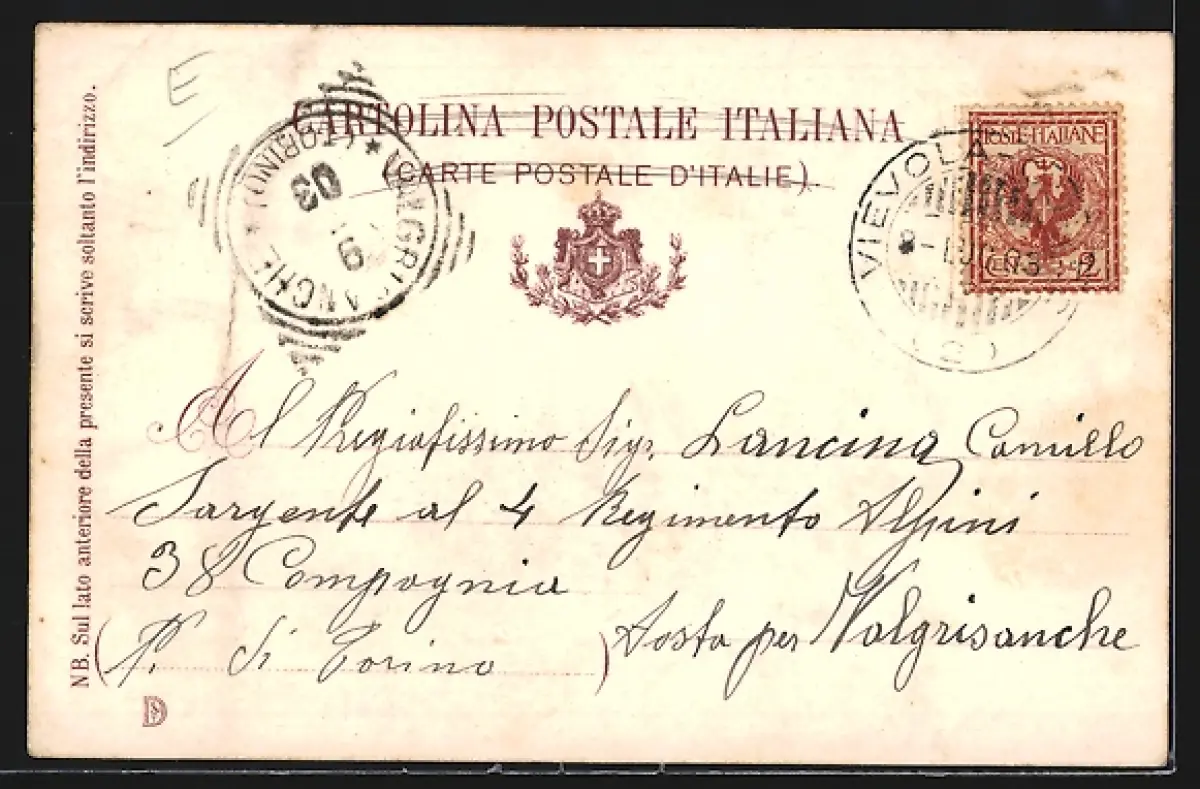 E
CARTOLINA POSTALE ITALIANA
(CARTE POSTALE D'ITALIE).
VALGRISANCHE
(TORINO)
9
03
POSTE ITALIANE
CENT. 2
VIEVOLA
8 - LUG. 03
(2)
Al Pregiatissimo Sig. Lancina Camillo
Sargente al 4 Regimento Alpini
38 Compagnia
Aosta per Valgrisanche
(P. di Torino)
NB. Sul lato anteriore della presente si scrive soltanto l'indirizzo.